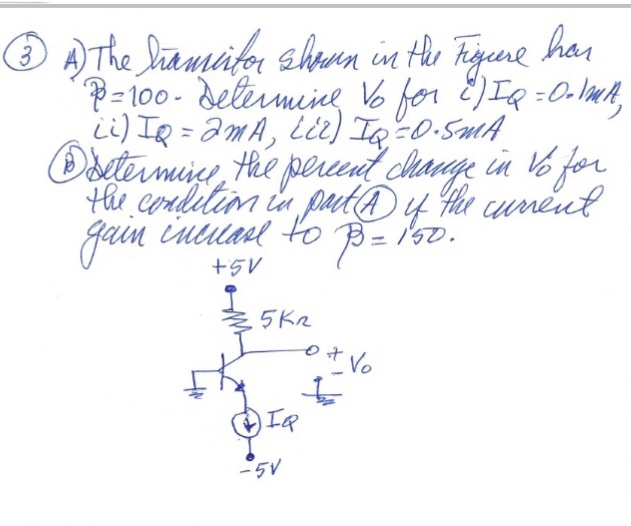 ③ A) The transistor shown in the Figure has
β=100. Determine Vo for i) IQ = 0.1mA,
ii) IQ = 2mA, iii) IQ=0.5mA
Ⓑ Determine, the percent change in Vo for
the condition in part Ⓐ if the current
gain increase to β = 150.
+5V
5KΩ
+
- Vo
IQ
-5V